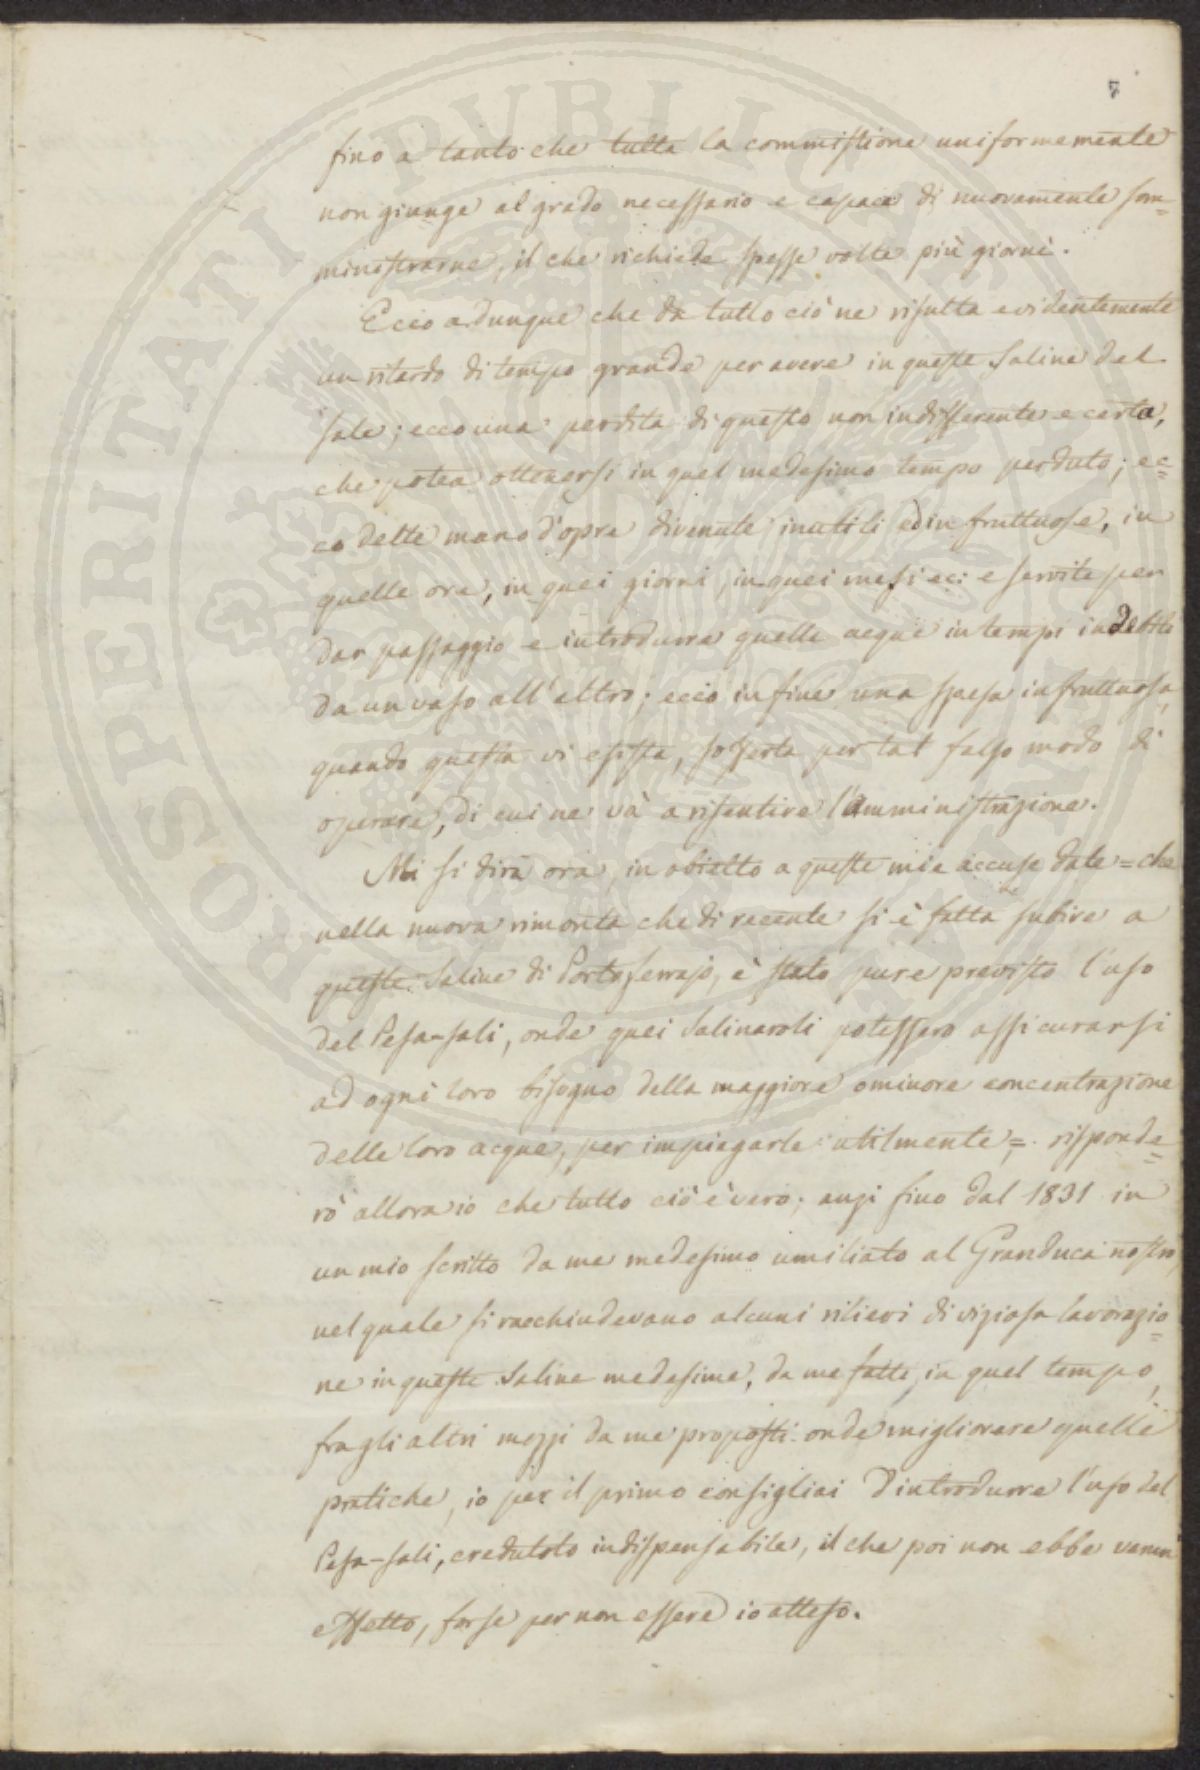 5
fino a tanto che tutta la commistione uniformemente
non giunge al grado necessario e capace di nuovamente som=
ministrarne, il che richiede spesse volte più giorni.
Ecco adunque che da tutto ciò ne risulta evidentemente
un ritardo di tempo grande per avere in queste Saline del
sale; ecco una perdita di questo non indifferente e certa,
che potea ottenersi in quel medesimo tempo perduto; ec=
co delle mano d'opre divenute inutili ed infruttuose, in
quelle ore, in quei giorni, in quei mesi ec: e servite per
dar passaggio e introdurre quelle acque in tempi indebiti
da un vaso all'altro; ecco in fine una spesa infruttuosa,
quando questa vi esista, sofferta per tal falso modo di
operare, di cui ne và a risentire l'amministrazione.
Mi si dirà ora, in obietto a queste mie accuse date = che
nella nuova rimonta che di recente si è fatta subire a
queste Saline di Portoferrajo, è stato pure previsto l'uso
del Pesa-sali, onde quei Salinaroli potessero assicurarsi
ad ogni loro bisogno della maggiore o minore concentrazione
delle loro acque, per impiegarle utilmente, = risponde=
rò allora io che tutto ciò è vero; anzi fino dal 1831 in
un mio scritto da me medesimo umiliato al Granduca nostro,
nel quale si racchiudevano alcuni rilievi di viziosa lavorazio=
ne in queste Saline medesime, da me fatti, in quel tempo,
fra gli altri mezzi da me proposti onde migliorare quelle
pratiche, io per il primo consigliai d'introdurre l'uso del
Pesa-sali, credutolo indispensabile, il che poi non ebbe verun
effetto, forse per non essere io atteso.
POSPERITATI PVBLICAE